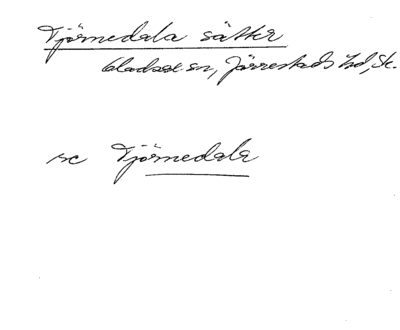 Tjörnedala sätter
Gladsax sn, Järrestads hd, Sk.
se Tjörnedala